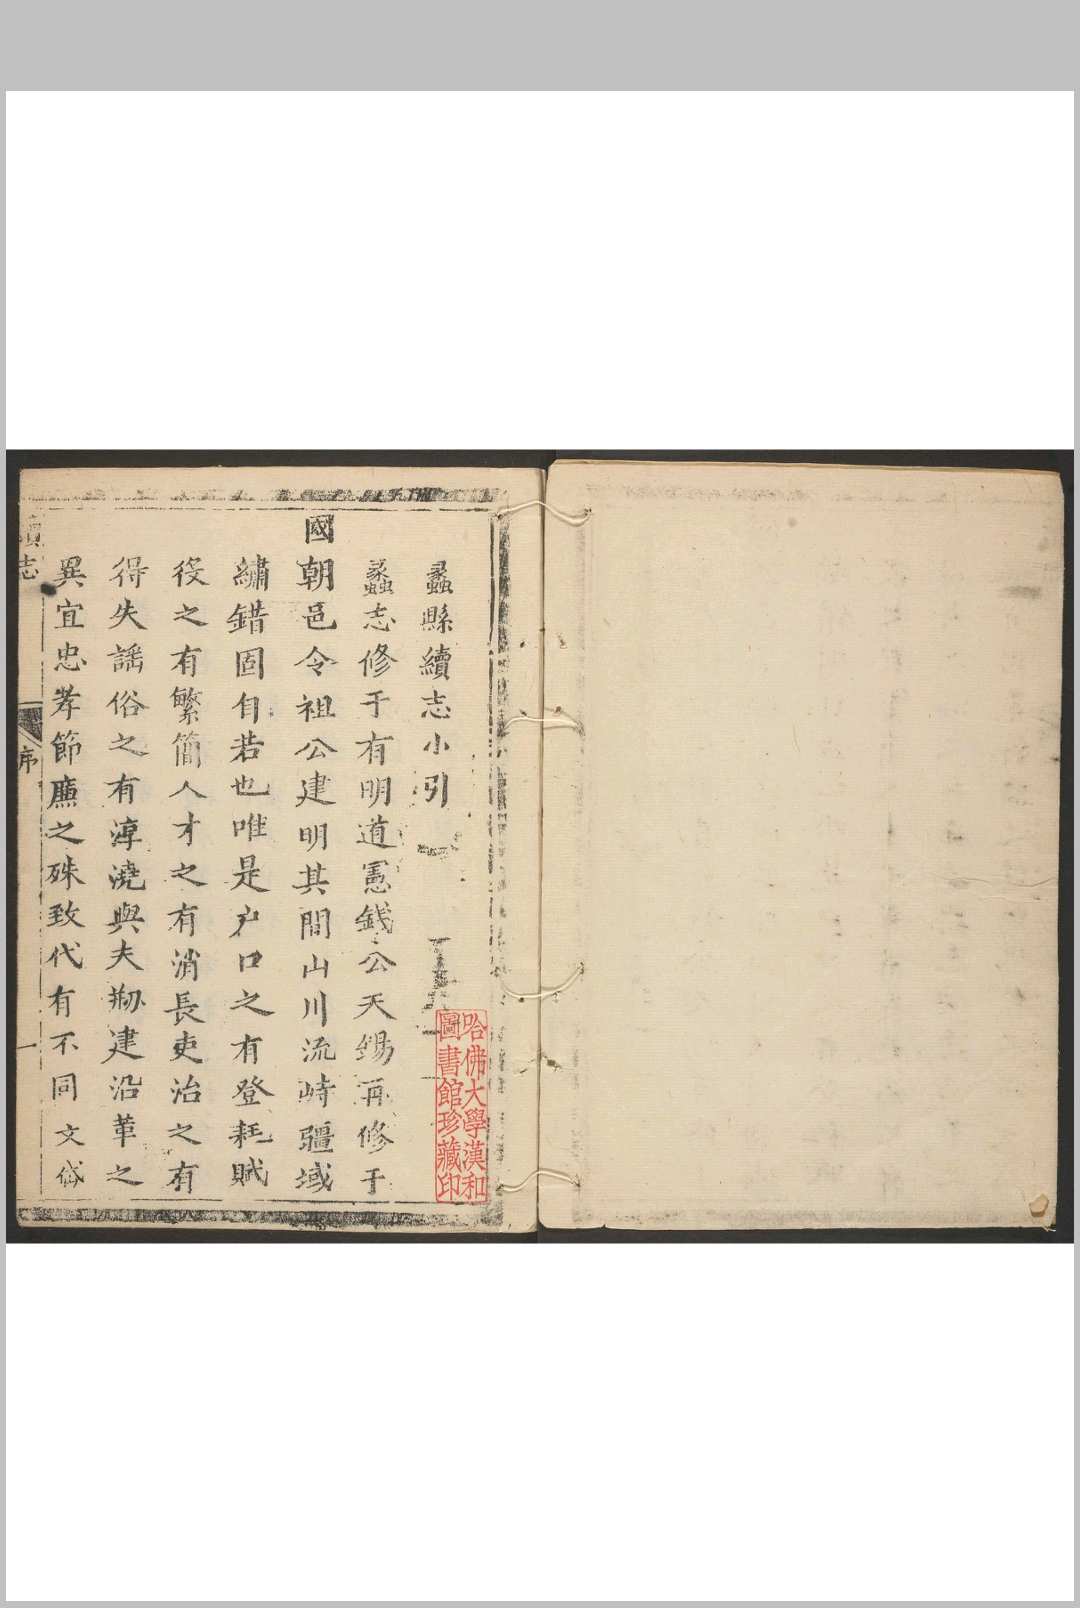 蠡縣續志小引
蠡志修于有明道憲錢公天錫再修于
國朝邑令祖公建明其間山川流峙疆域
繡錯固自若也唯是户口之有登耗賦
役之有繁簡人才之有消長吏治之有
得失謡俗之有淳澆與夫剙建沿革之
異宜忠孝節廉之殊致代有不同文獻
續志
序
一
哈佛大學漢和
圖書館珍藏印